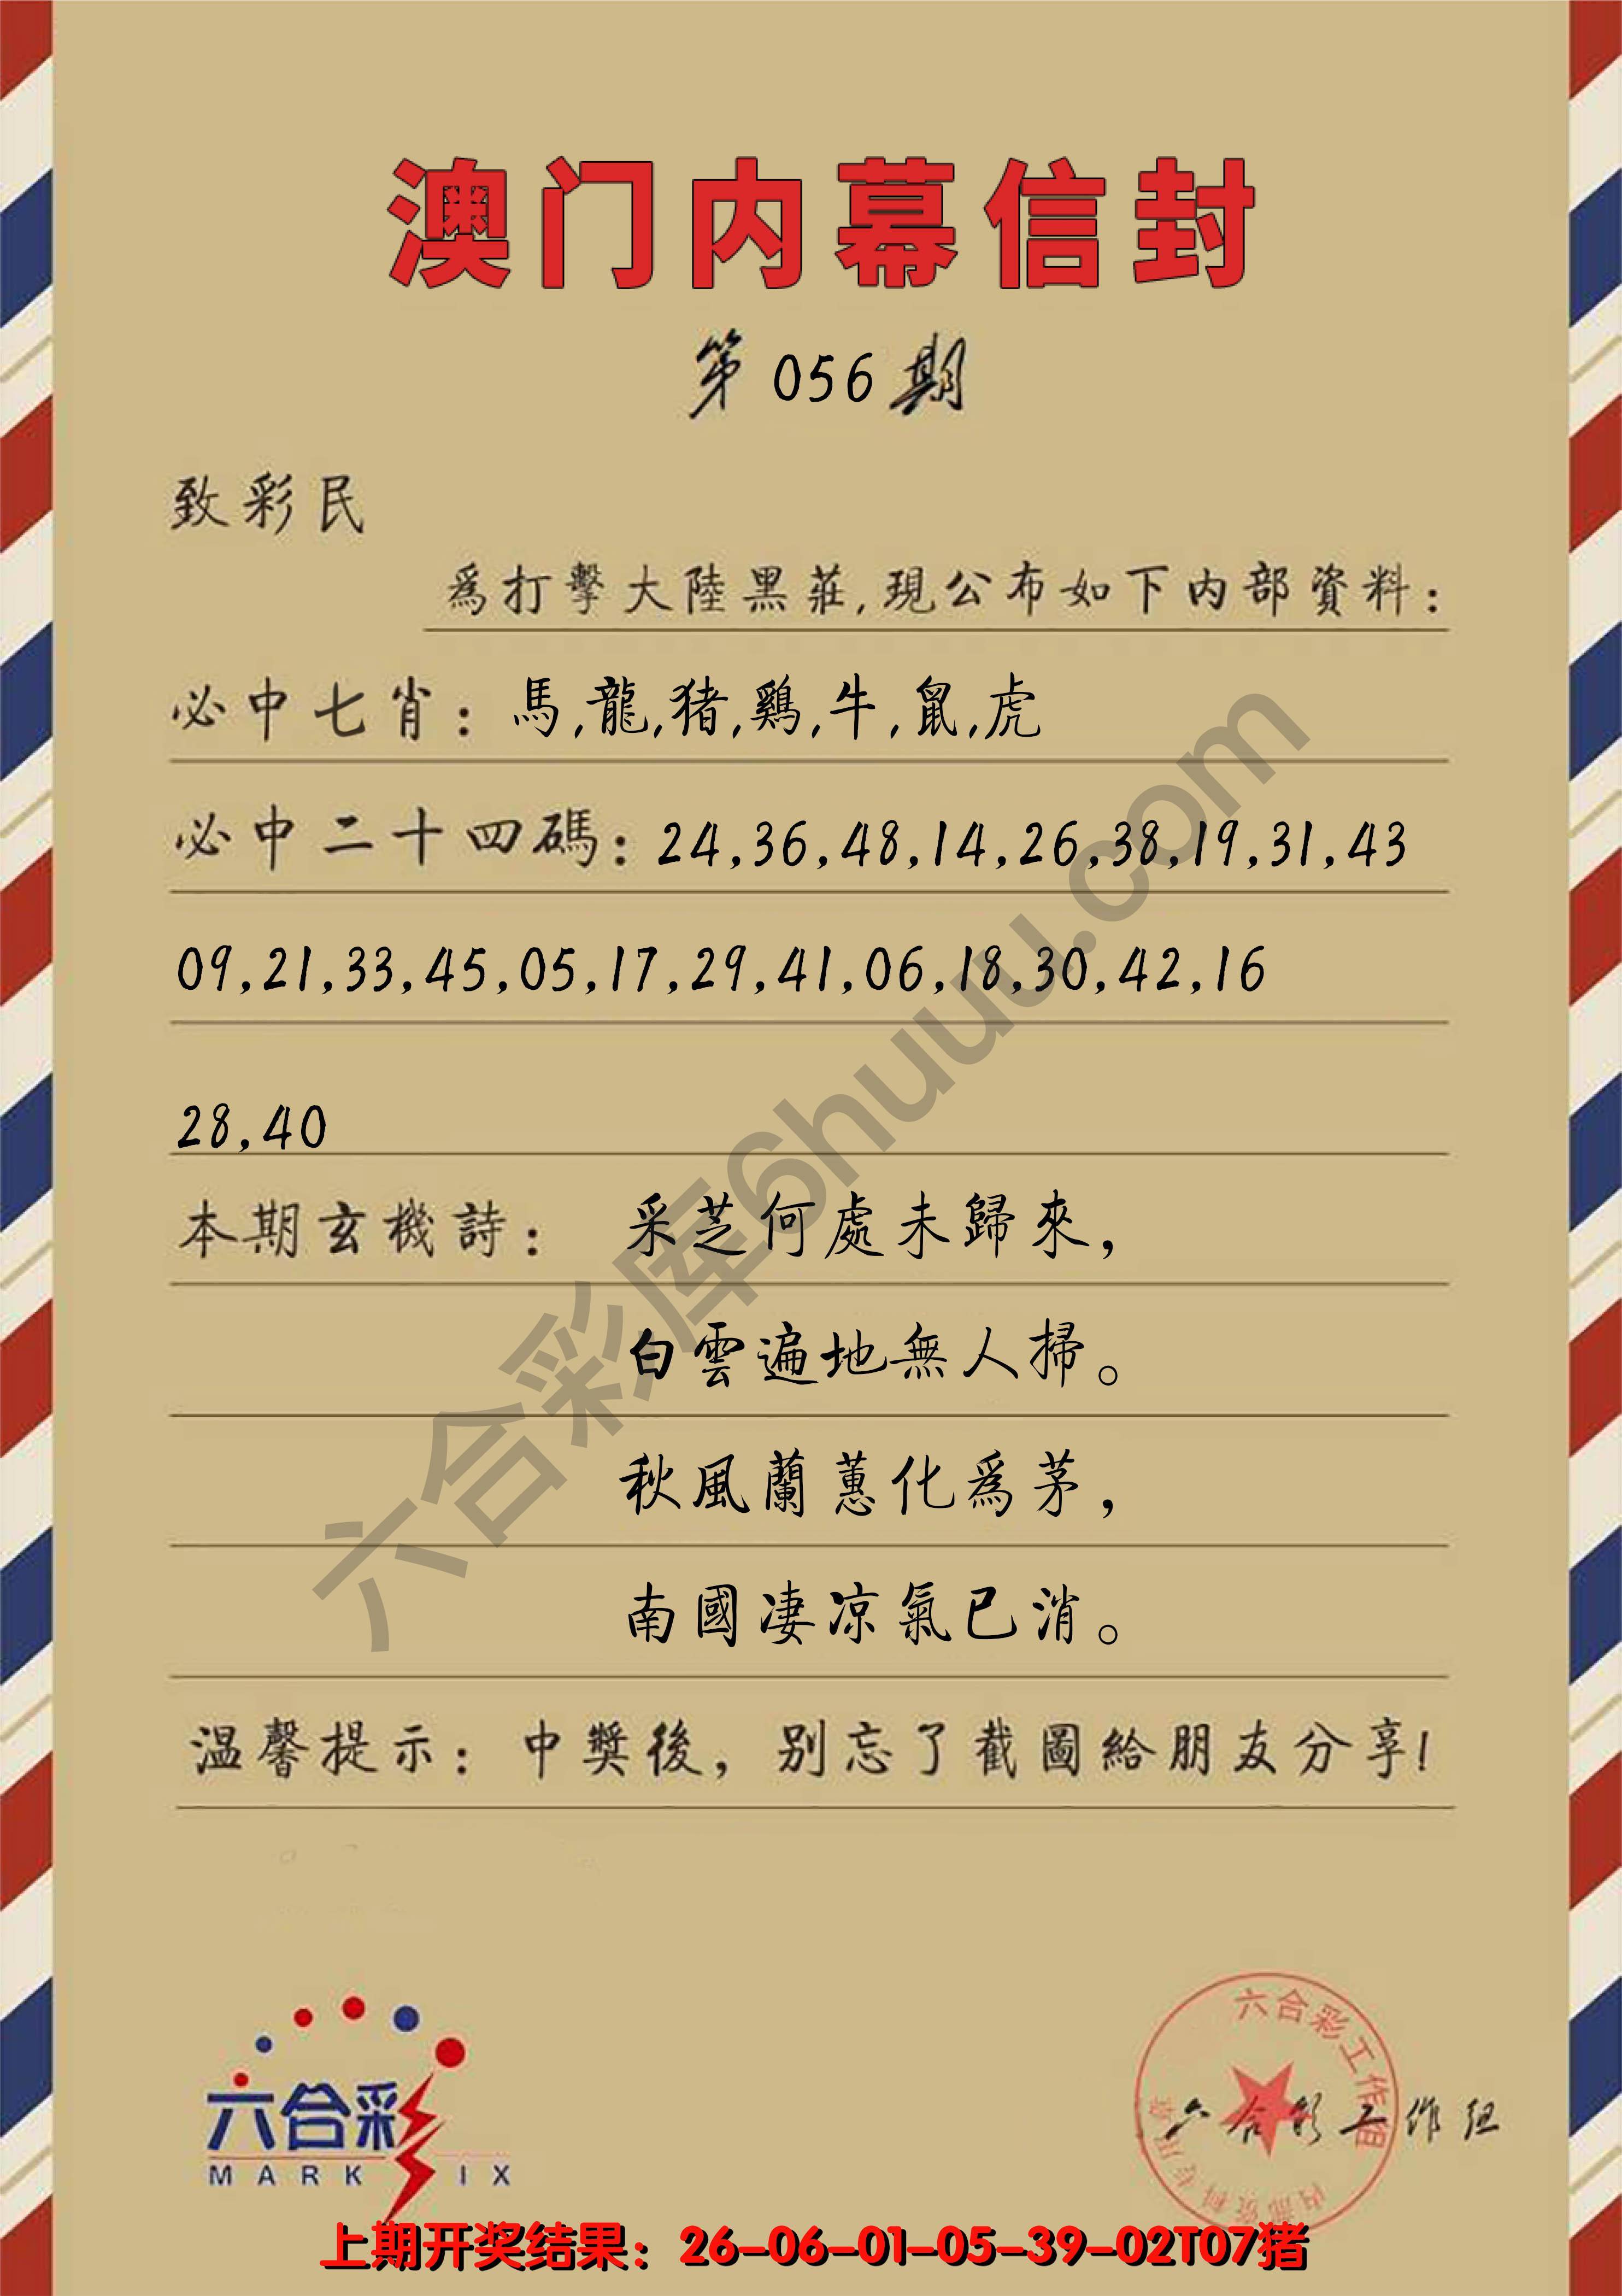 澳门内幕信封
第 056 期
致彩民
為打擊大陸黑莊,現公布如下内部資料:
必中七肖: 馬,龍,猪,鷄,牛,鼠,虎
必中二十四碼: 24,36,48,14,26,38,19,31,43
09,21,33,45,05,17,29,41,06,18,30,42,16
28,40
本期玄機詩: 采芝何處未歸來,
白雲遍地無人掃。
秋風蘭蕙化爲茅,
南國凄凉氣已消。
温馨提示: 中獎後, 别忘了截圖給朋友分享!
六合彩库6huuu.com
六合彩
MARK IX
六合彩工作组
内部资料专用章
六合彩工作组
上期开奖结果: 26-06-01-05-39-02T07猪